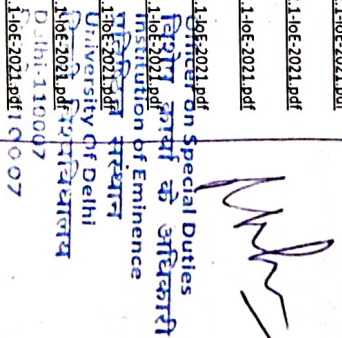 .1-IoE-2021.pdf
.1-IoE-2021.pdf
.1-IoE-2021.pdf
.1-IoE-2021.pdf
.1-IoE-2021.pdf
.1-IoE-2021.pdf
.1-IoE-2021.pdf
.1-IoE-2021.pdf
on Special Duties
कार्य के अधिकारी
Institution of Eminence
संस्थान
University Of Delhi
विश्वविद्यालय
Delhi-110007
110007